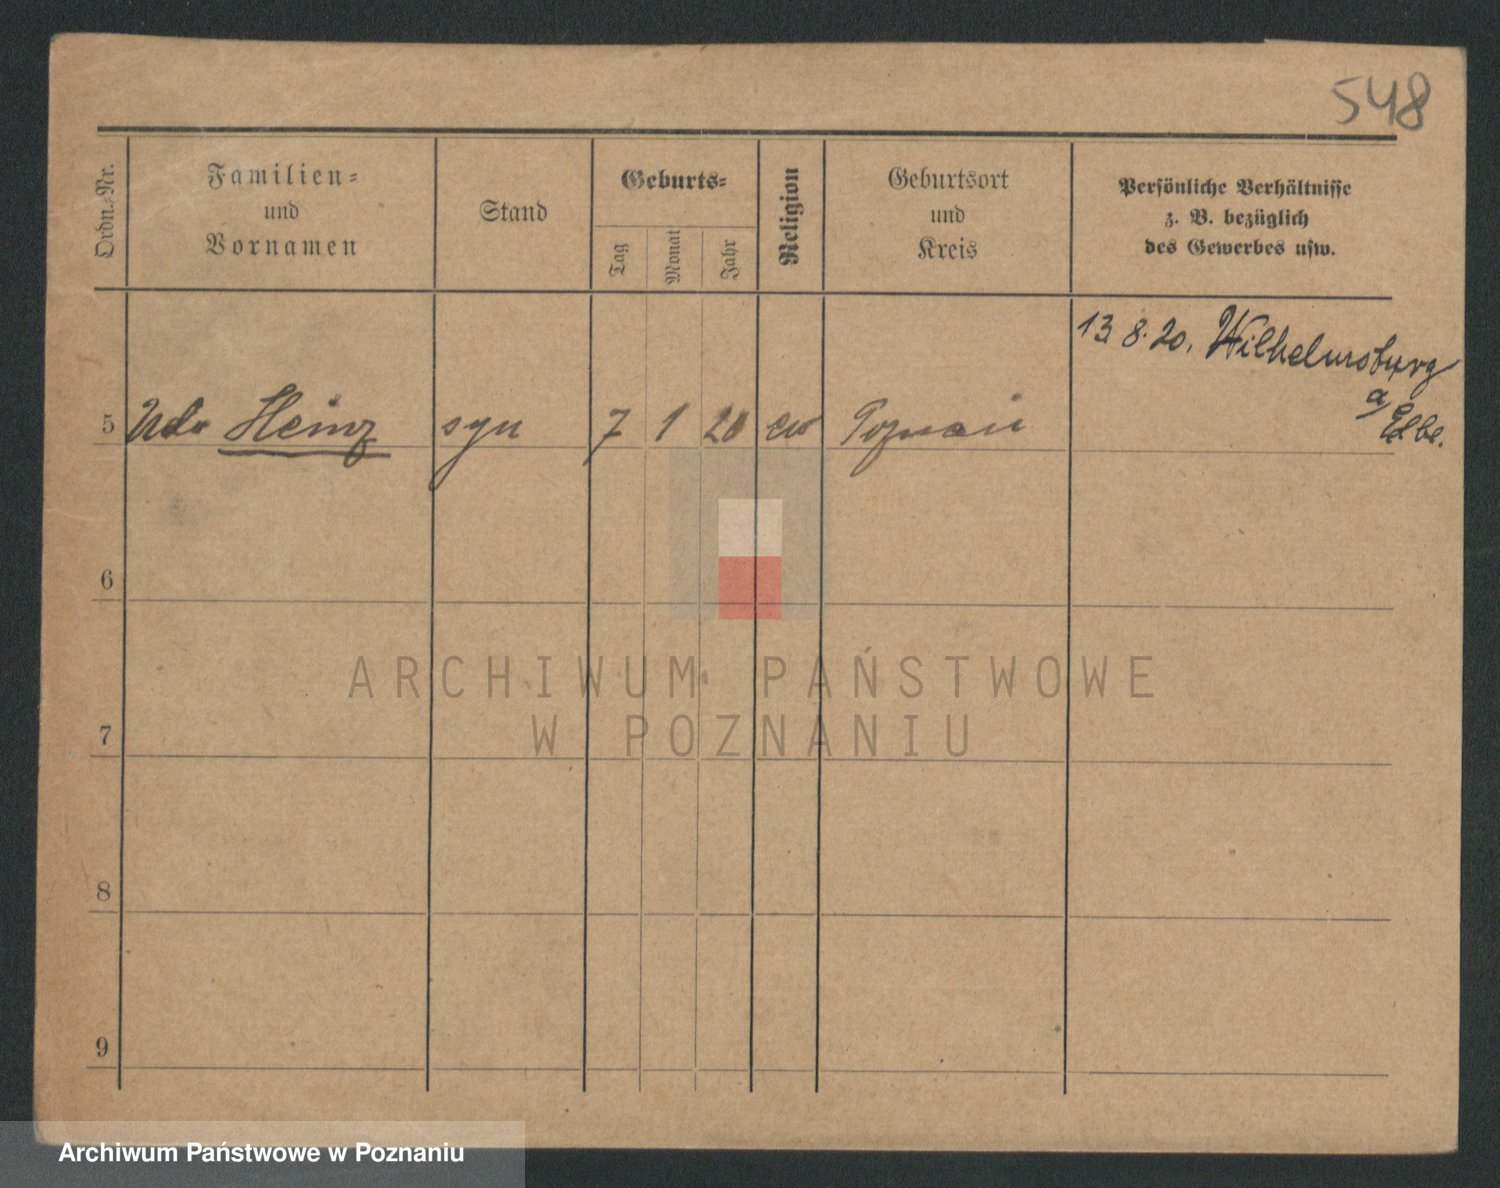 548
Ordn.-Nr.
Familien-
und
Vornamen
Stand
Geburts-
Tag
Monat
Jahr
Religion
Geburtsort
und
Kreis
Persönliche Verhältnisse
z. B. bezüglich
des Gewerbes usw.
13 8.20. Wilhelmsburg
a/
Elbe.
5 Udo Heinz syn 7 1 20 ew Poznań
6
7
8
9
ARCHIWUM PAŃSTWOWE
W POZNANIU
Archiwum Państwowe w Poznaniu